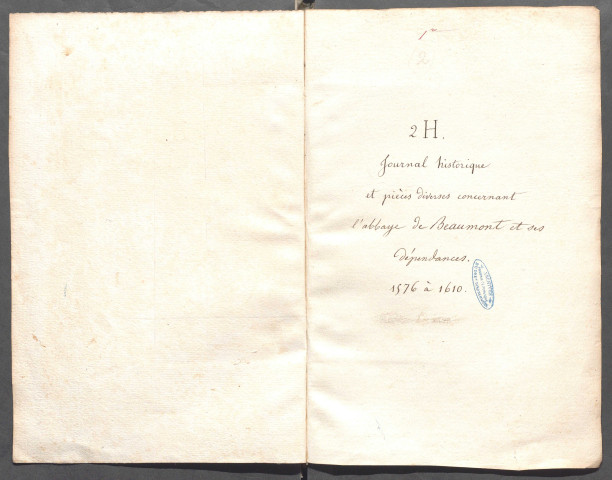 2
2 H.
Journal historique
et pièces diverses concernant
l'abbaye de Beaumont et ses
dépendances.
1576 à 1610.